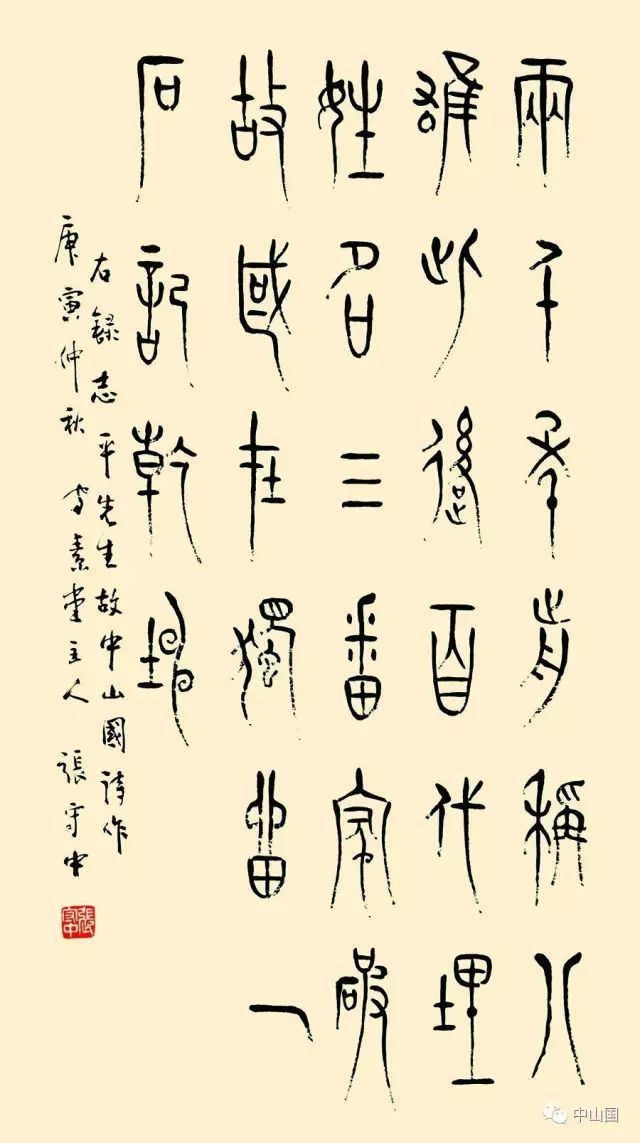 兩千年前稱八
雄此後百代埋
姓名三番家破
故國在獨留一
石記乾坤
右錄志平先生故中山國詩作
庚寅仲秋守素堂主人張守中
張守中
中山国